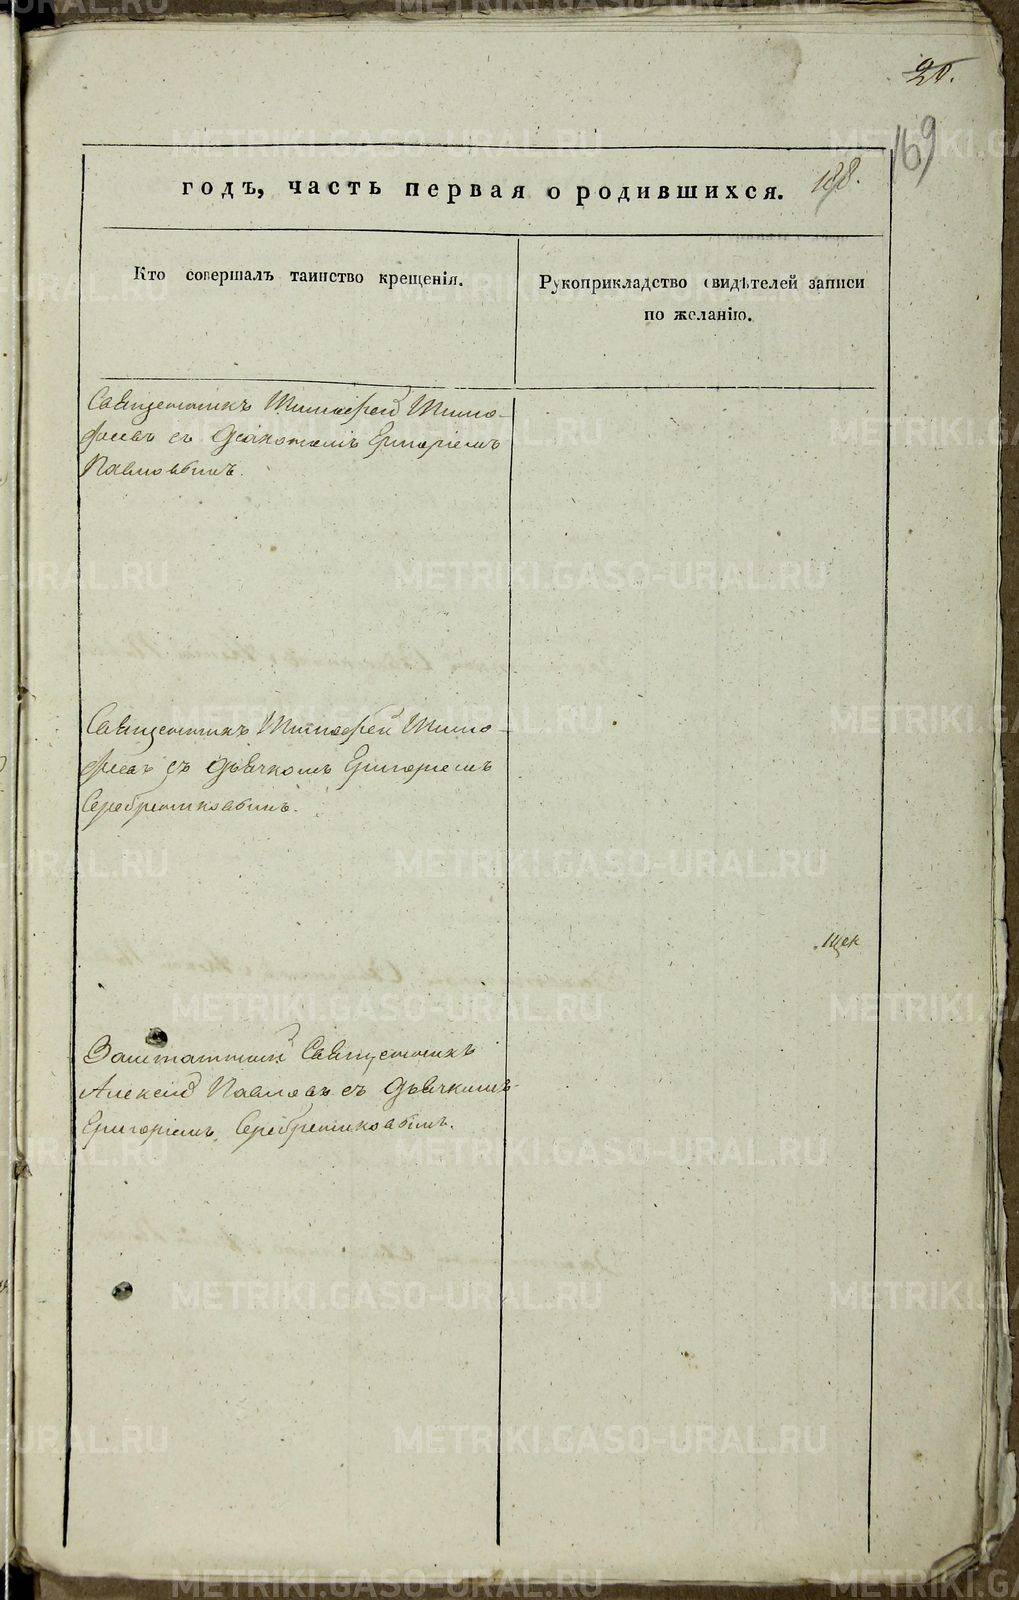 20.
169
годъ, часть первая о родившихся. 188.
Кто совершалъ таинство крещенія.
Рукоприкладство свидѣтелей записи
по желанію.
Священникъ Тимофей Тимо-
феевъ съ Діакономъ Григоріемъ
Павловымъ.
Священникъ Тимофей Тимо-
феевъ съ дьячкомъ Григоріемъ
Серебрениковымъ.
Заштатный Священникъ
Алексій Павловъ съ Дьячкомъ
Григоріемъ Серебрениковымъ.
METRIKI.GASO-URAL.RU